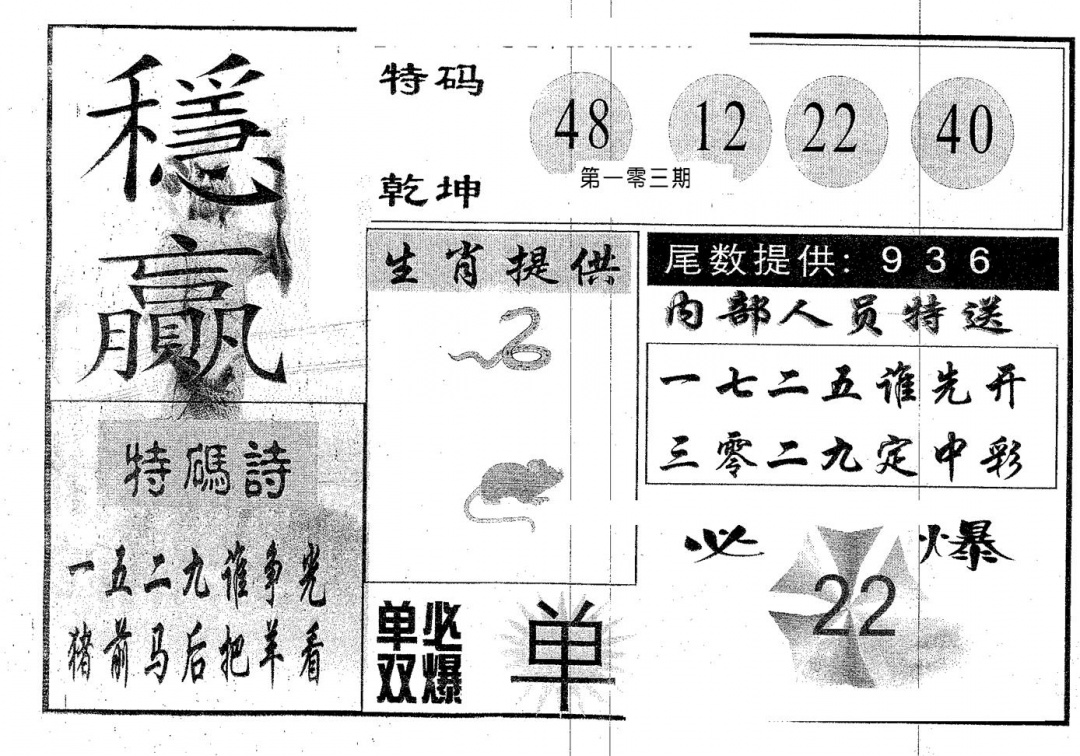 穩
贏
特码
乾坤
48 12 22 40
第一零三期
生肖提供
尾数提供: 9 3 6
内部人员特送
一七二五谁先开
三零二九定中彩
特碼詩
一五二九谁争光
猪前马后把羊看
单双
必爆
单
必爆
22